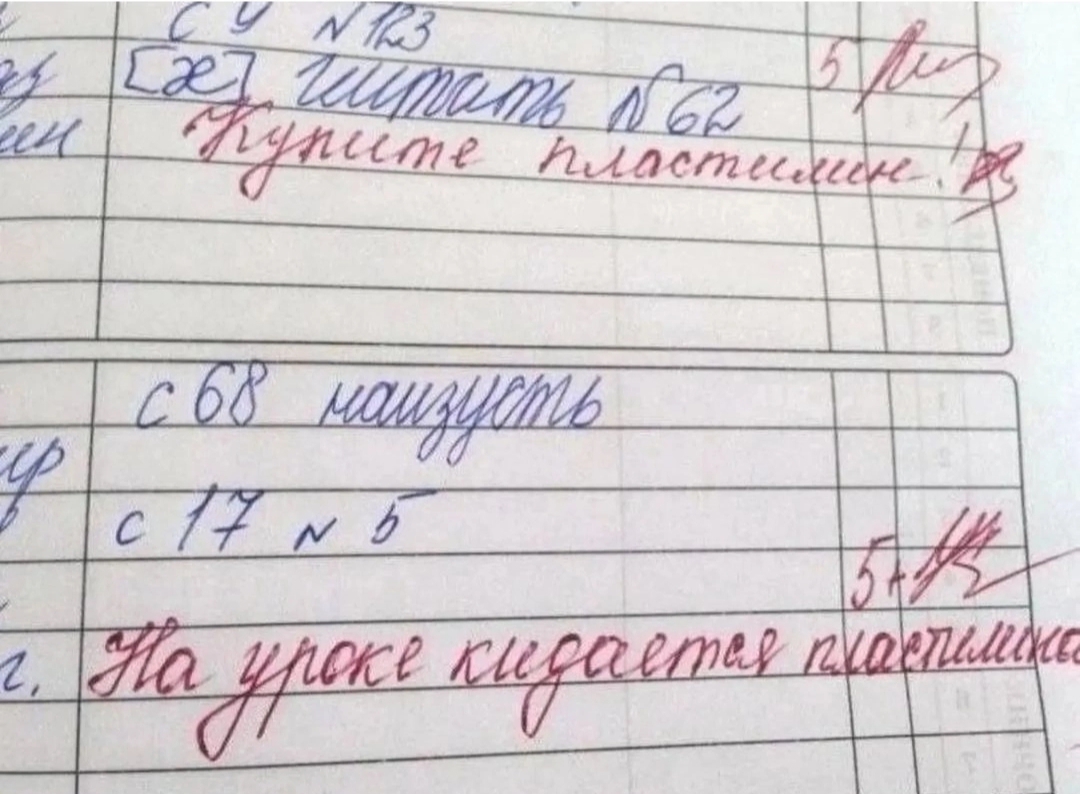 с У N 123
[ж] читать N 62
5
Купите пластилин!
ин
с 68 наизусть
с 17 N 5
5+
На уроке кидается пластилино